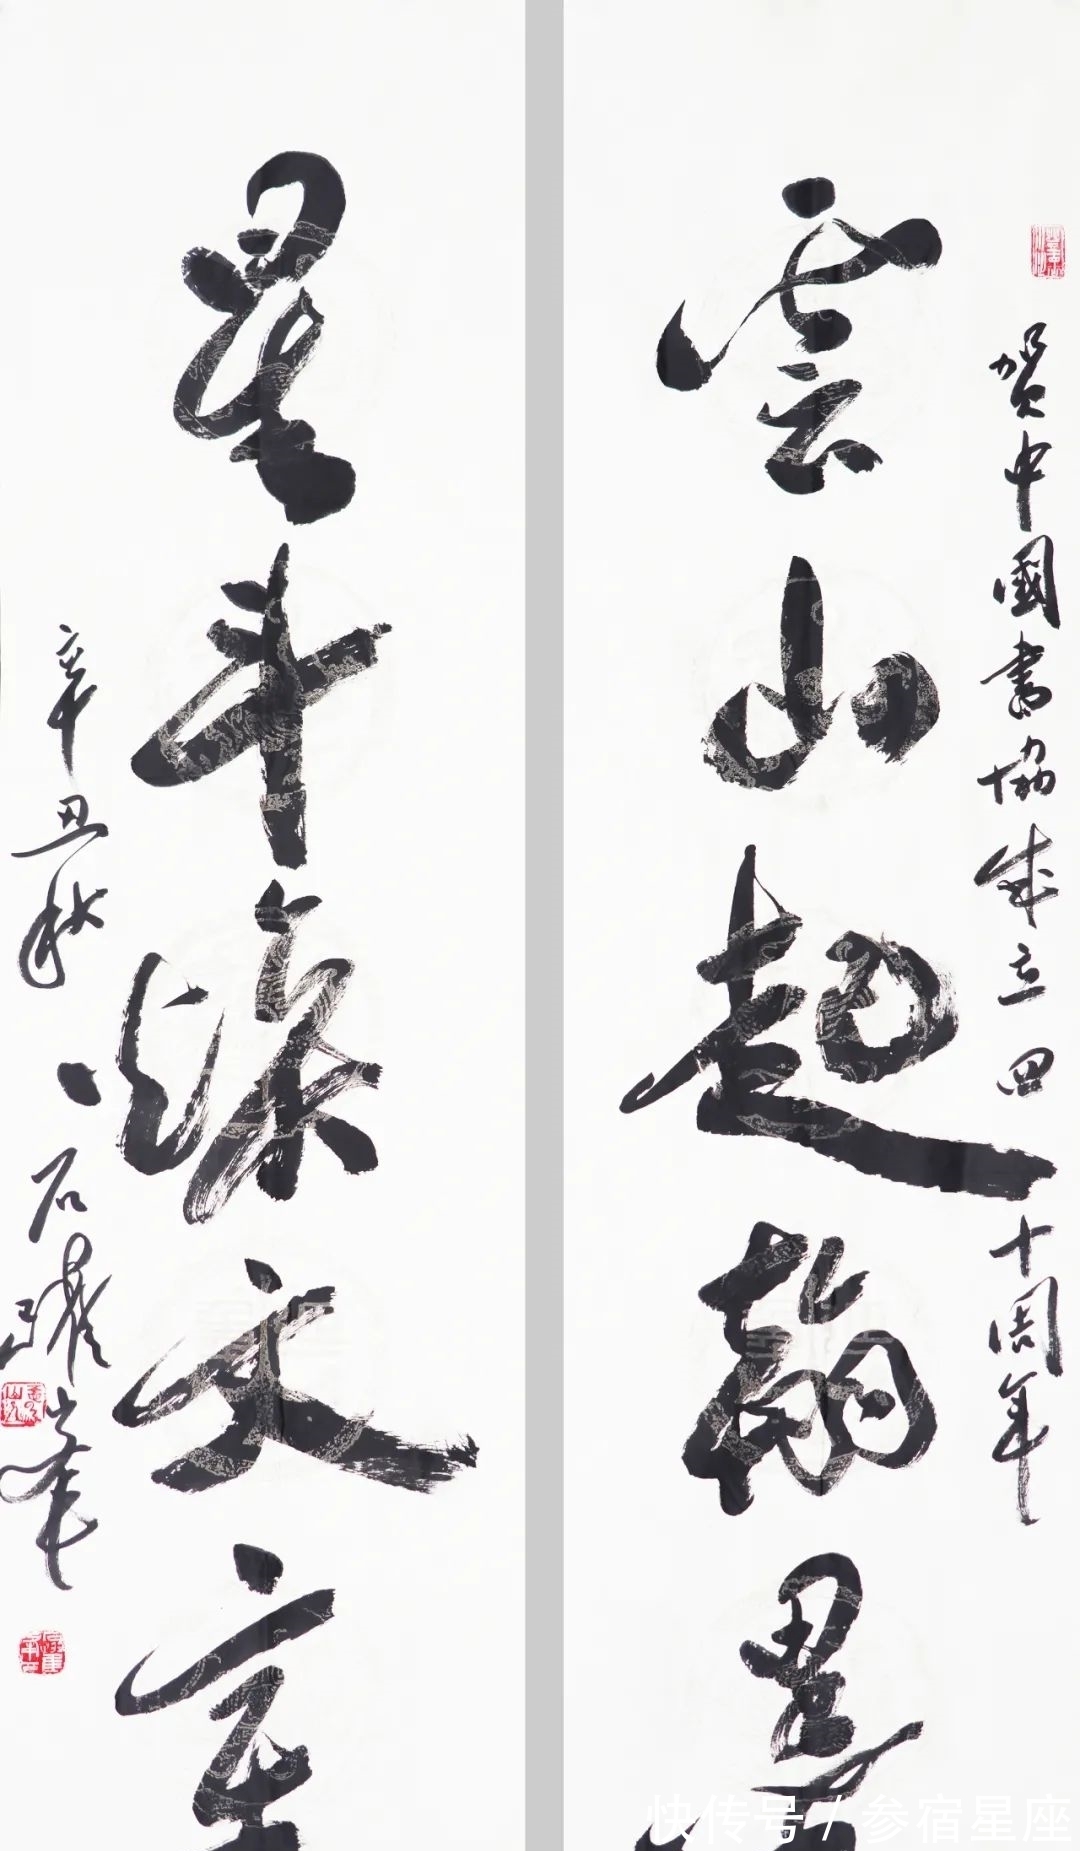 賀中國書協成立四十周年
雲山起翰墨
星斗煥文章
辛丑秋石躍峯
快传号 / 参宿星座